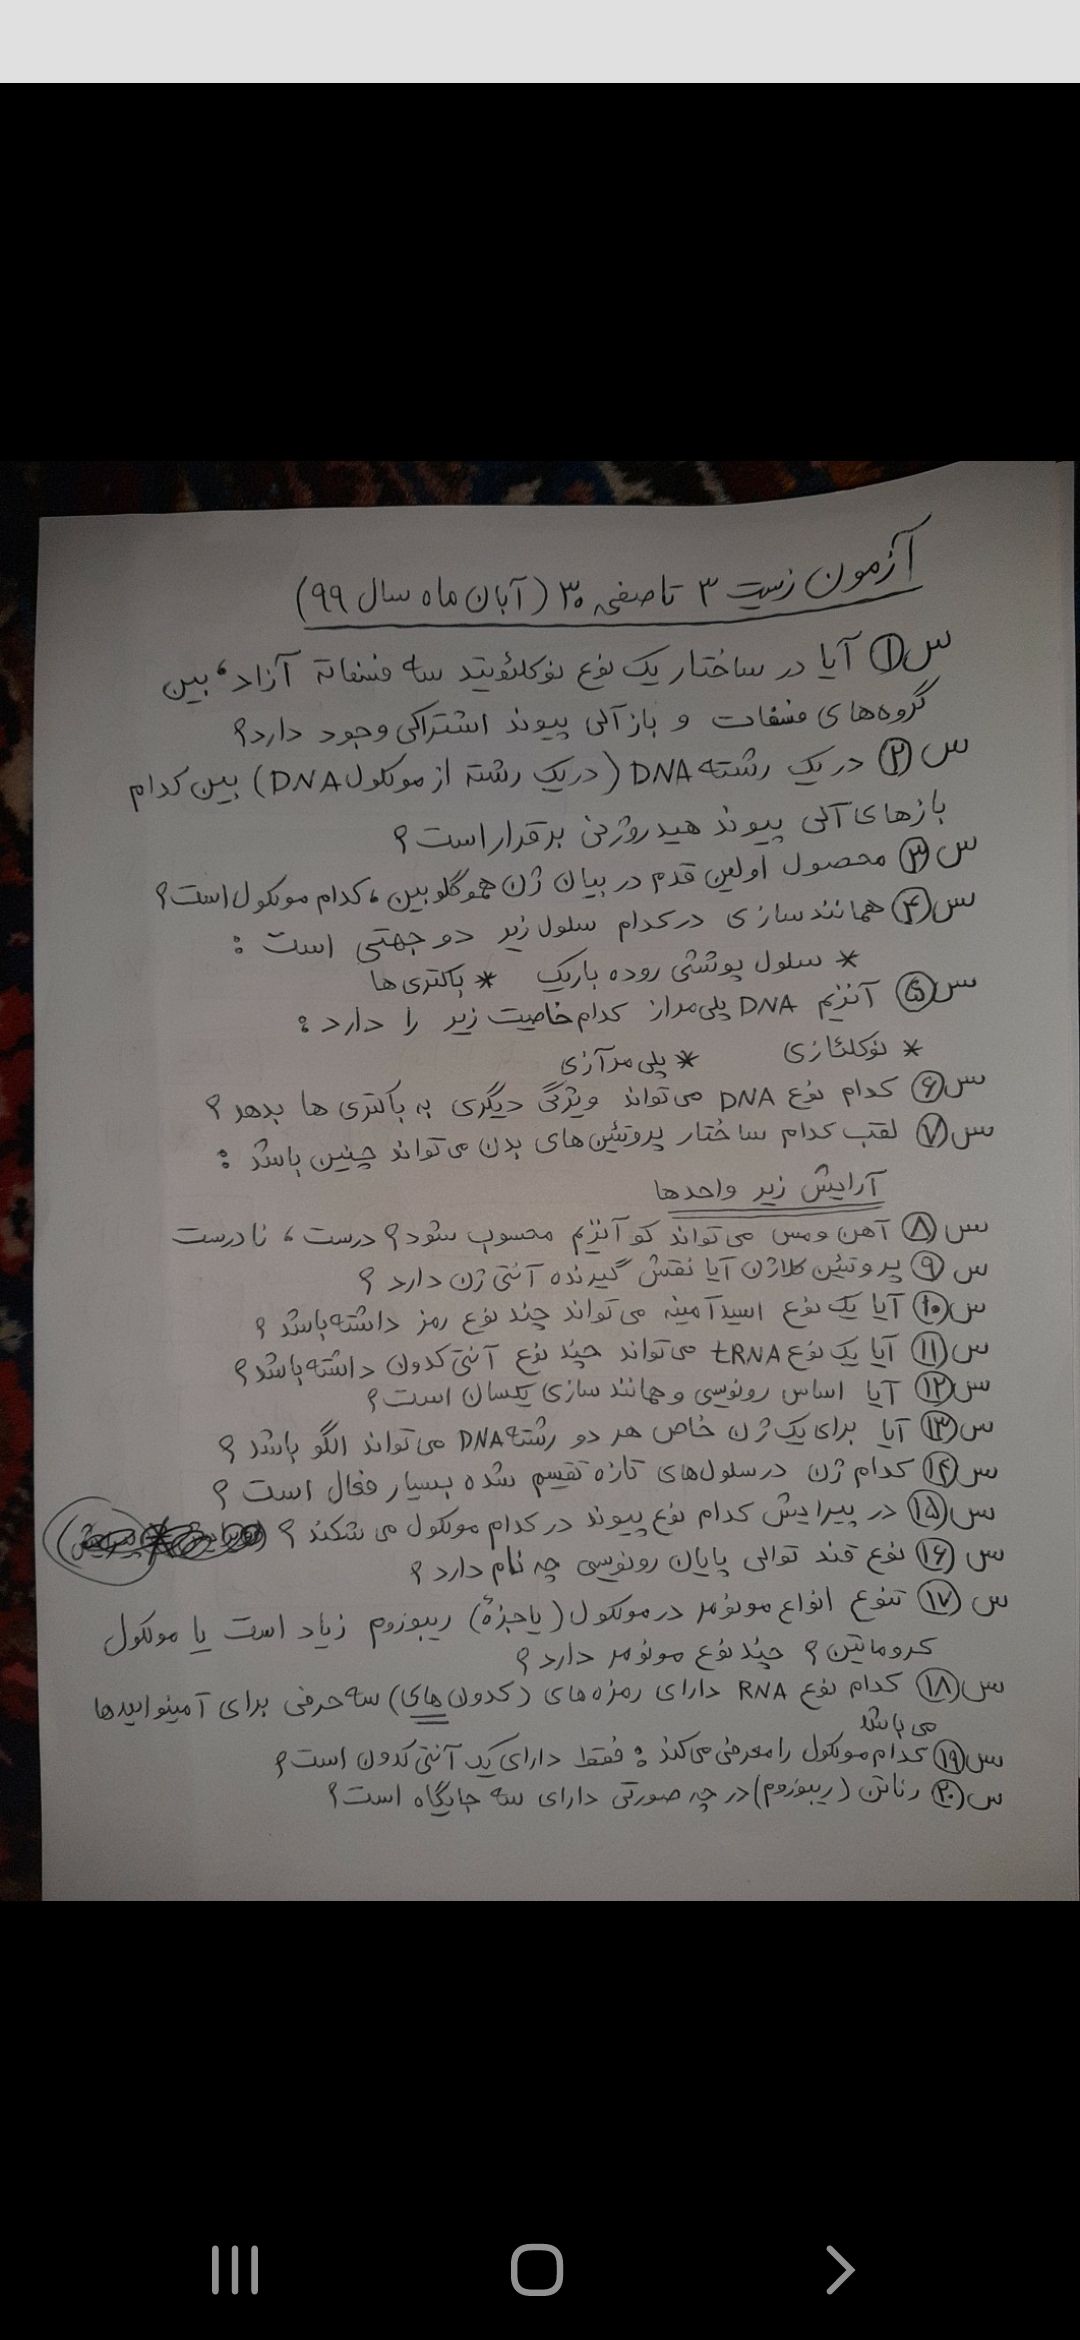 آزمون زیست ۳ تا صفحه ۳۰ (آبان ماه سال ۹۹)
س۱) آیا در ساختار یک نوع نوکلئوتید سه فسفاتهٔ آزاد، بین
گروه‌های فسفات و باز آلی پیوند اشتراکی وجود دارد؟
س۲) در یک رشته DNA (در یک رشتهٔ از مولکول DNA) بین کدام
بازهای آلی پیوند هیدروژنی برقرار است؟
س۳) محصول اولین قدم در بیان ژن هموگلوبین، کدام مولکول است؟
س۴) همانندسازی در کدام سلول زیر دو جهتی است :
* سلول پوششی روده باریک * باکتری ها
س۵) آنزیم DNA پلی‌مراز کدام خاصیت زیر را دارد :
* نوکلئازی * پلی مرآزی
س۶) کدام نوع DNA می‌تواند ویژگی دیگری به باکتری ها بدهد ؟
س۷) لقب کدام ساختار پروتئین‌های بدن می‌تواند چنین باشد :
آرایش زیر واحدها
س۸) آهن و مس می‌تواند کوآنزیم محسوب شود؟ درست ، نادرست
س۹) پروتئین کلاژن آیا نقش گیرنده آنتی ژن دارد ؟
س۱۰) آیا یک نوع اسیدآمینه می‌تواند چند نوع رمز داشته باشد ؟
س۱۱) آیا یک نوع tRNA می‌تواند چند نوع آنتی کدون داشته باشد؟
س۱۲) آیا اساس رونویسی و همانند سازی یکسان است؟
س۱۳) آیا برای یک ژن خاص هر دو رشته DNA می‌تواند الگو باشد ؟
س۱۴) کدام ژن در سلول‌های تازه تقسیم شده بسیار فعال است ؟
س۱۵) در پیرایش کدام نوع پیوند در کدام مولکول می شکند ؟
س۱۶) نوع قند توالی پایان رونویسی چه نام دارد ؟
س۱۷) تنوع انواع مونومر در مولکول (یا جزهٔ) ریبوزوم زیاد است یا مولکول
کروماتین ؟ چند نوع مونومر دارد ؟
س۱۸) کدام نوع RNA دارای رمزه های (کدون های) سه حرفی برای آمینواسیدها
می باشد
س۱۹) کدام مولکول را معرفی می‌کند : فقط دارای یک آنتی کدون است؟
س۲۰) رناتن (ریبوزوم) در چه صورتی دارای سه جایگاه است؟